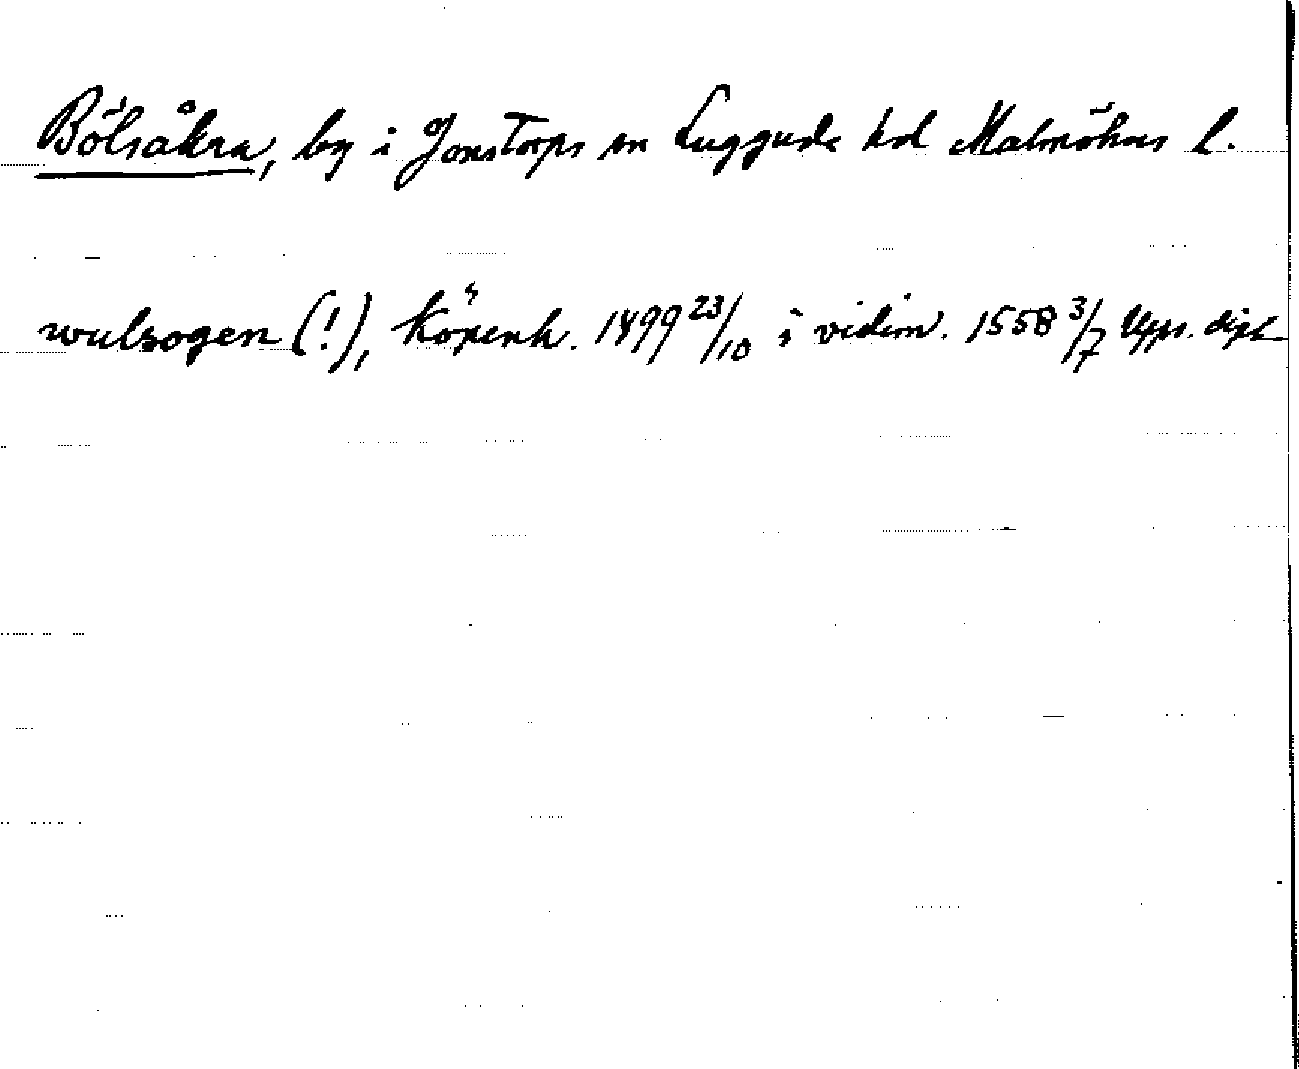 Bölsåkra, by i Jonstorps sn Luggude hd Malmöhus l.
wulsogen (!), Köpenh. 1499 23/10 i vidim. 1558 3/7 Upps. dipl